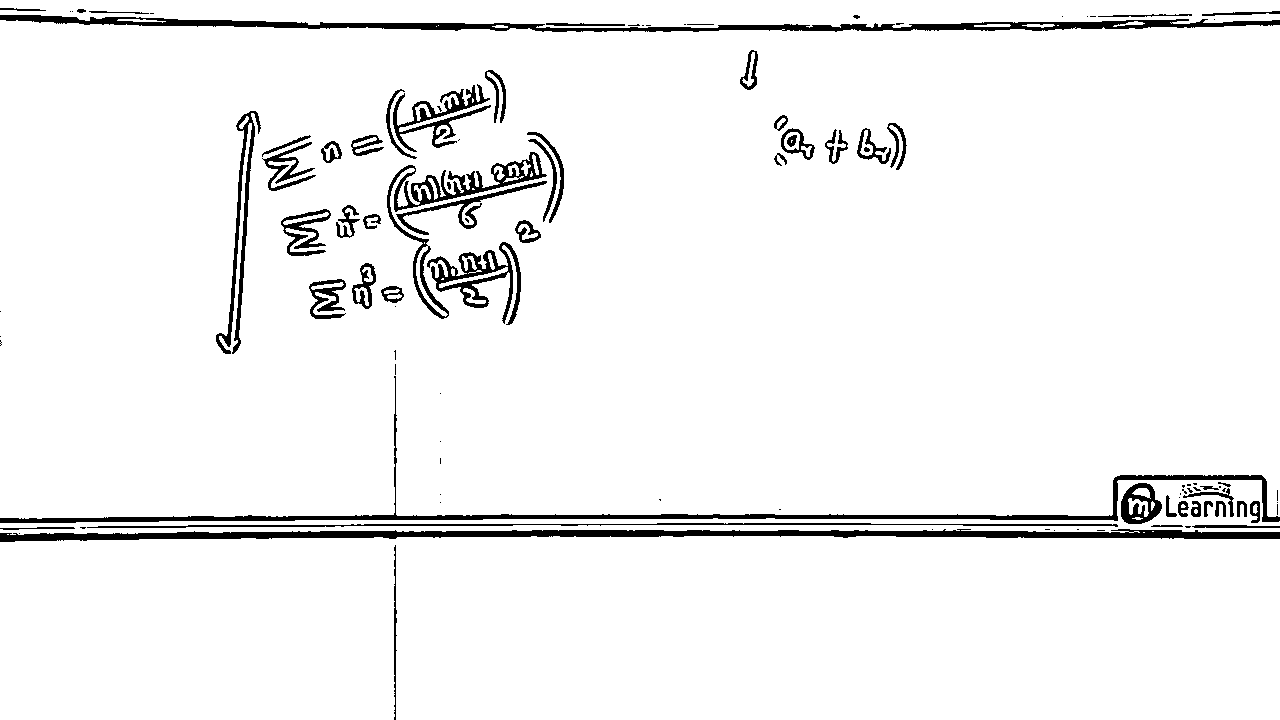 ∑ n = (n.n+1/2)
∑ n² = ((n)(n+1 2n+1/6)
∑ n³ = (n.n+1/2)²
↓
(aᵣ + bᵣ)
m Learning